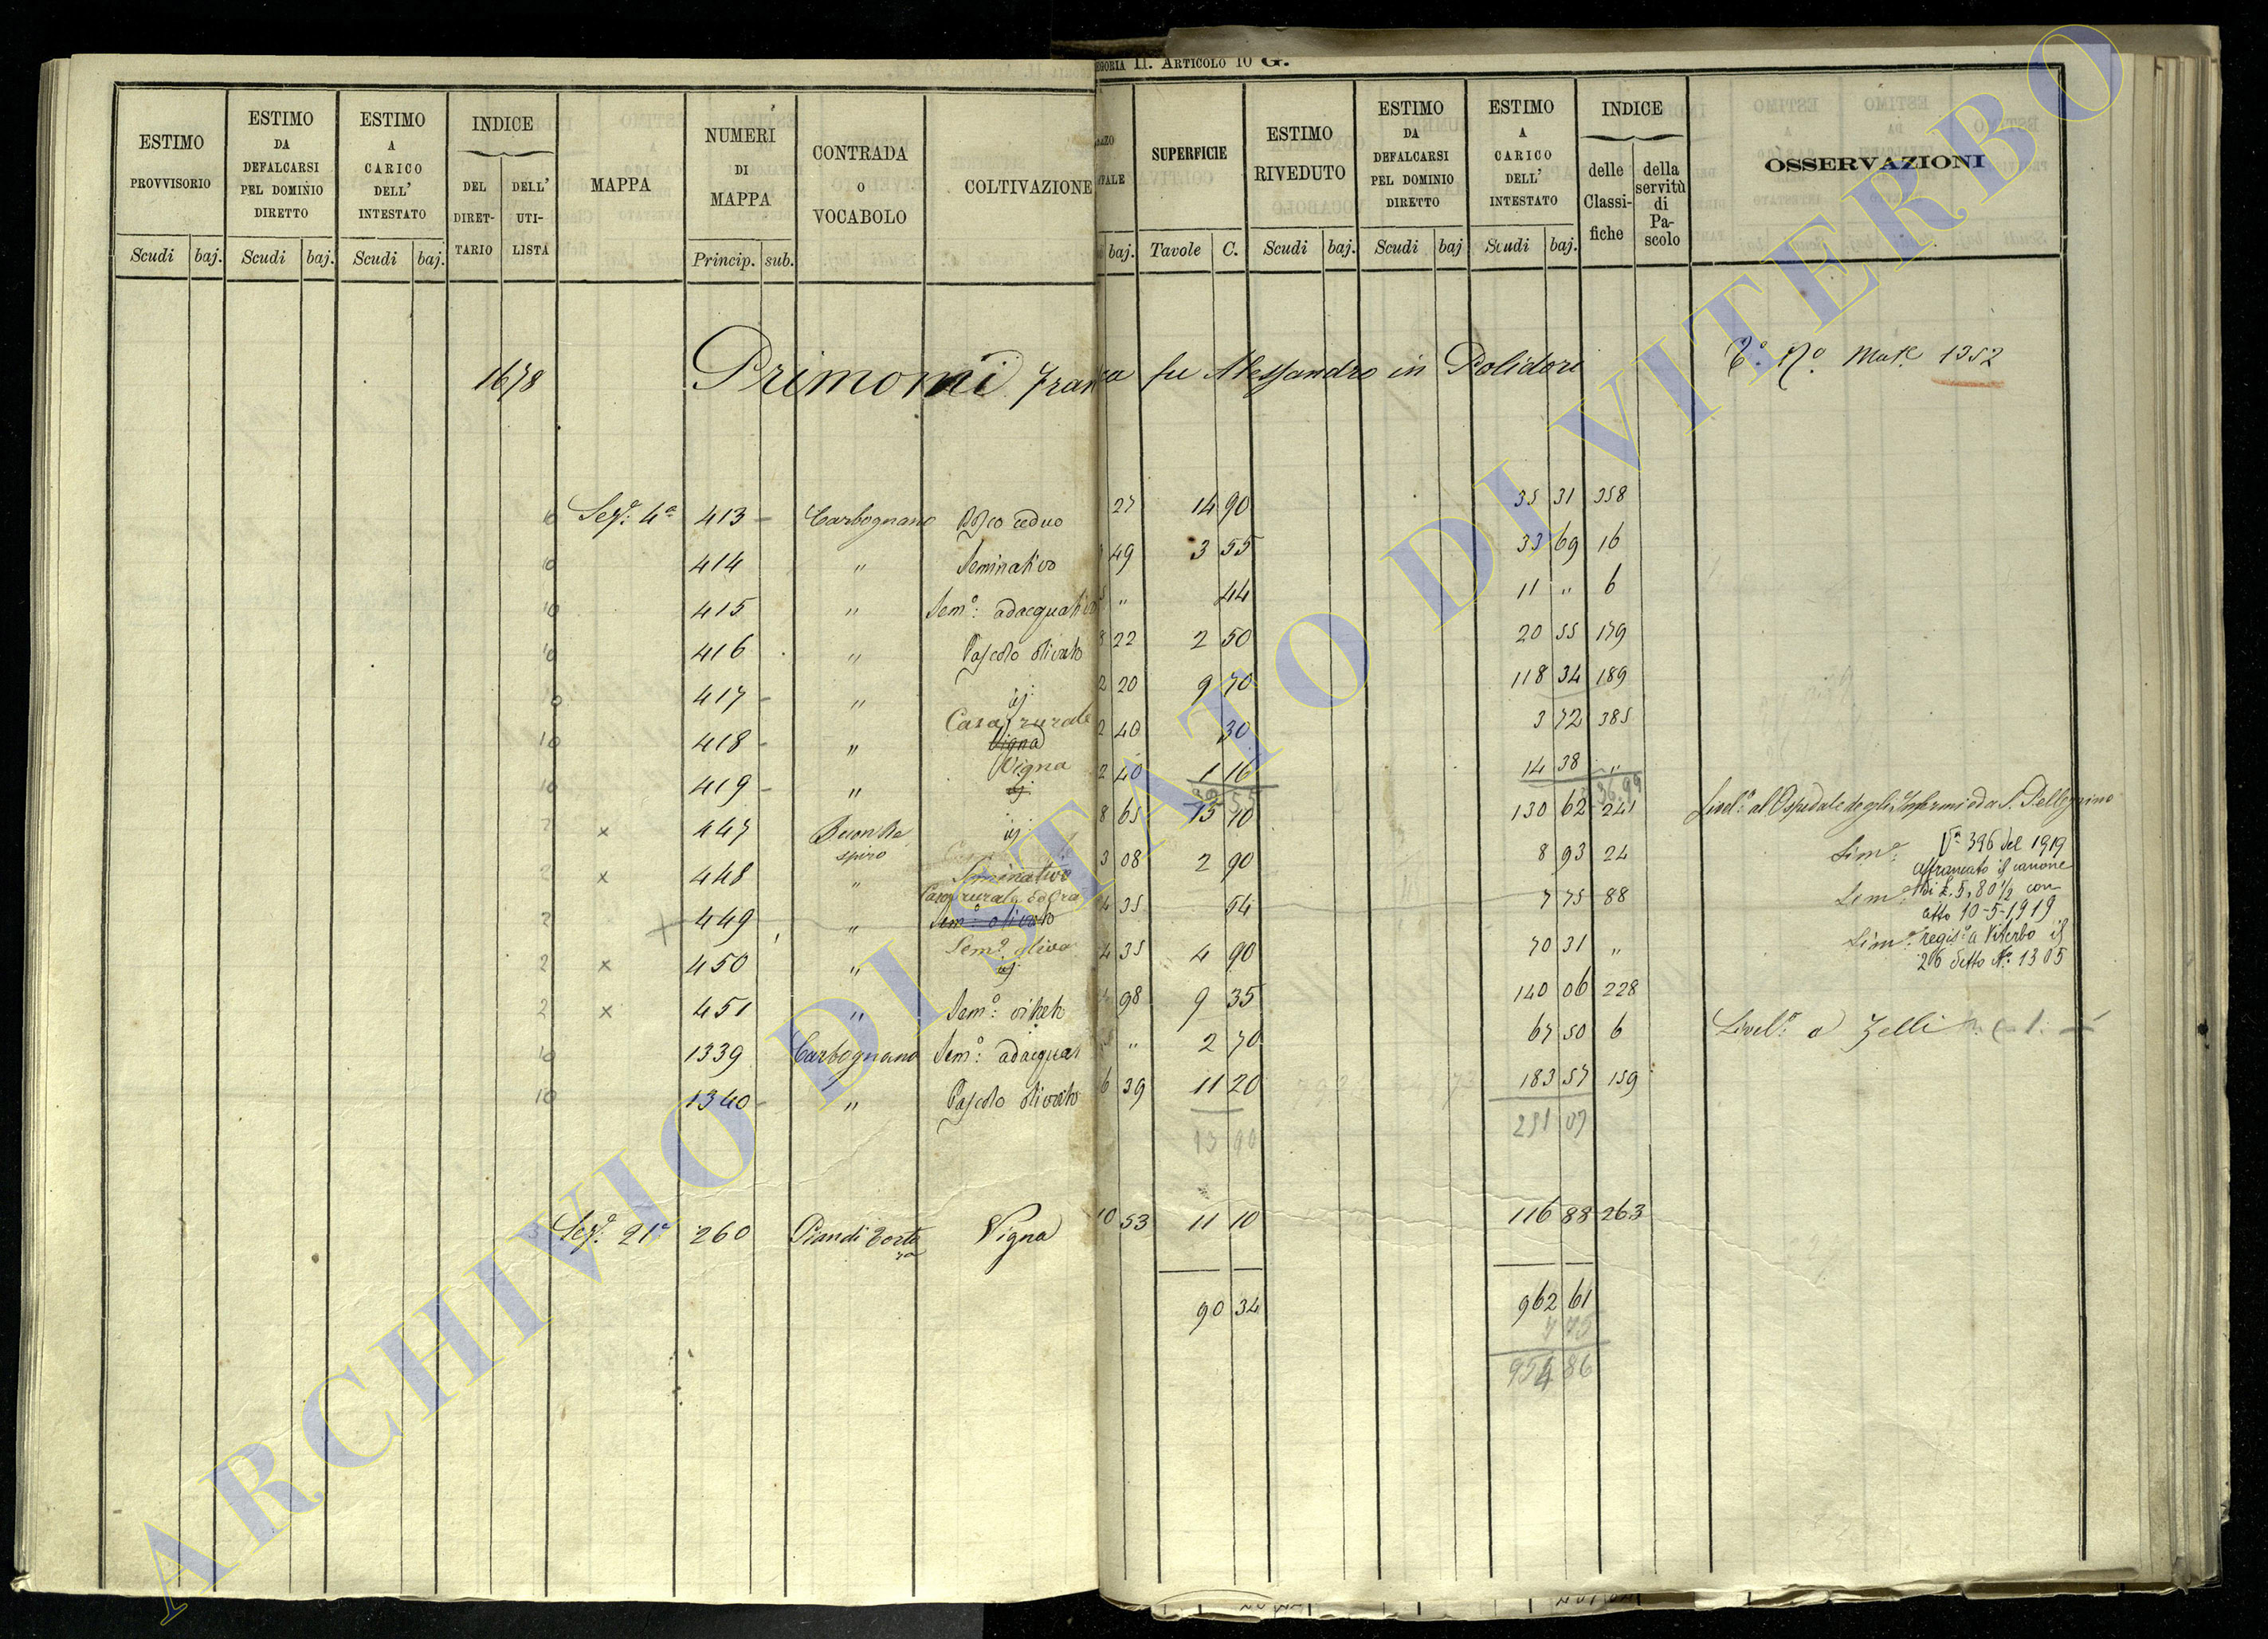 ARCHIVIO DI STATO DI VITERBO
CATEGORIA II. ARTICOLO 10 G.
ESTIMO PROVVISORIO
Scudi baj.
ESTIMO DA DEFALCARSI PEL DOMINIO DIRETTO
Scudi baj.
ESTIMO A CARICO DELL' INTESTATO
Scudi baj.
INDICE
DEL DIRET-TARIO
DELL' UTI-LISTA
MAPPA
NUMERI DI MAPPA
Princip. sub.
CONTRADA O VOCABOLO
COLTIVAZIONE
baj.
SUPERFICIE
Tavole C.
ESTIMO RIVEDUTO
Scudi baj.
ESTIMO DA DEFALCARSI PEL DOMINIO DIRETTO
Scudi baj
ESTIMO A CARICO DELL' INTESTATO
Scudi baj.
INDICE
delle Classi-fiche
della servitù di Pa-scolo
OSSERVAZIONI
1678 Primomi Fran ca fu Alessandro in Polidori
Mat. 1352
10 Sez.e 4a 413 Carbognano Bosco ceduo 27 14 90 35 31 358
10 414 " Seminativo 49 3 55 33 69 16
10 415 " Sem.o: adacquativo " 44 11 " 6
10 416 " Pascolo olivato 8 22 2 50 20 55 179
10 417 " id 2 20 9 70 118 34 189
Casa rurale
10 418 " Vigna 2 40 30 3 72 385
Vigna
10 419 " id 2 40 1 16 14 38 "
2 x 447 Buon Re id 8 65 15 10 130 62 241 Livel.o al Ospedale degli Infermi od a S. Pellegrino
spiro
2 x 448 " Seminativo 3 08 2 90 8 93 24 Sim.e: V.a 396 del 1919
affrancato il canone
Casa rurale
2 449 " Sem.o olivato 4 35 54 7 75 88 Sim.e: di £. 5,80½ con
atto 10-5-1919
Sem.o oliva
2 x 450 " id 4 35 4 90 70 31 " Sim.e: regis.o a Viterbo il
26 detto N.o 1305
2 x 451 " Sem.o: vitato 98 9 35 140 06 228
10 1339 Carbognano Sem.o: adacquat " 2 70 67 50 6 Livel.o a Zelli
10 1340 " Pascolo olivato 6 39 11 20 183 57 159
13 90 251 07
3 Sez.e 21a 260 Piandi Torte Vigna 10 53 11 10 116 88 263
na
90 34 962 61
7 75
954 86